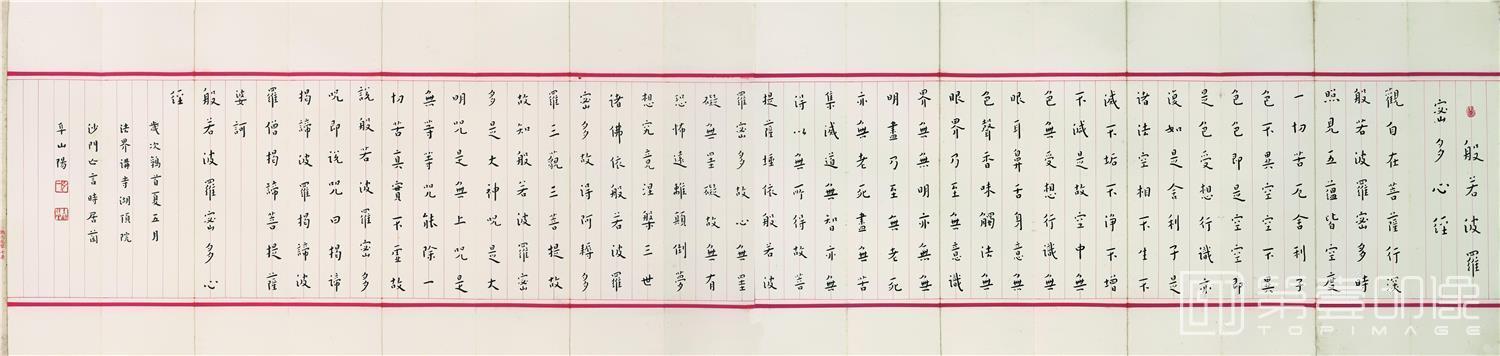 般若波羅
密多心經
觀自在菩薩行深
般若波羅密多時
照見五蘊皆空度
一切苦厄舍利子
色不異空空不異
色色即是空空即
是色受想行識亦
復如是舍利子是
諸法空相不生不
滅不垢不淨不增
不減是故空中無
色無受想行識無
眼耳鼻舌身意無
色聲香味觸法無
眼界乃至無意識
界無無明亦無無
明盡乃至無老死
亦無老死盡無苦
集滅道無智亦無
得以無所得故菩
提薩埵依般若波
羅密多故心無罣
礙無罣礙故無有
恐怖遠離顛倒夢
想究竟涅槃三世
諸佛依般若波羅
密多故得阿耨多
羅三藐三菩提故
故知般若波羅密
多是大神咒是大
明咒是無上咒是
無等等咒能除一
切苦真實不虛故
說般若波羅密多
咒即說咒曰揭諦
揭諦波羅揭諦波
羅僧揭諦菩提薩
婆訶
般若波羅密多心
經
歲次鶉首夏五月
法界講寺湖頂院
沙門亡言時居茵
阜山陽
TOPIMAGE